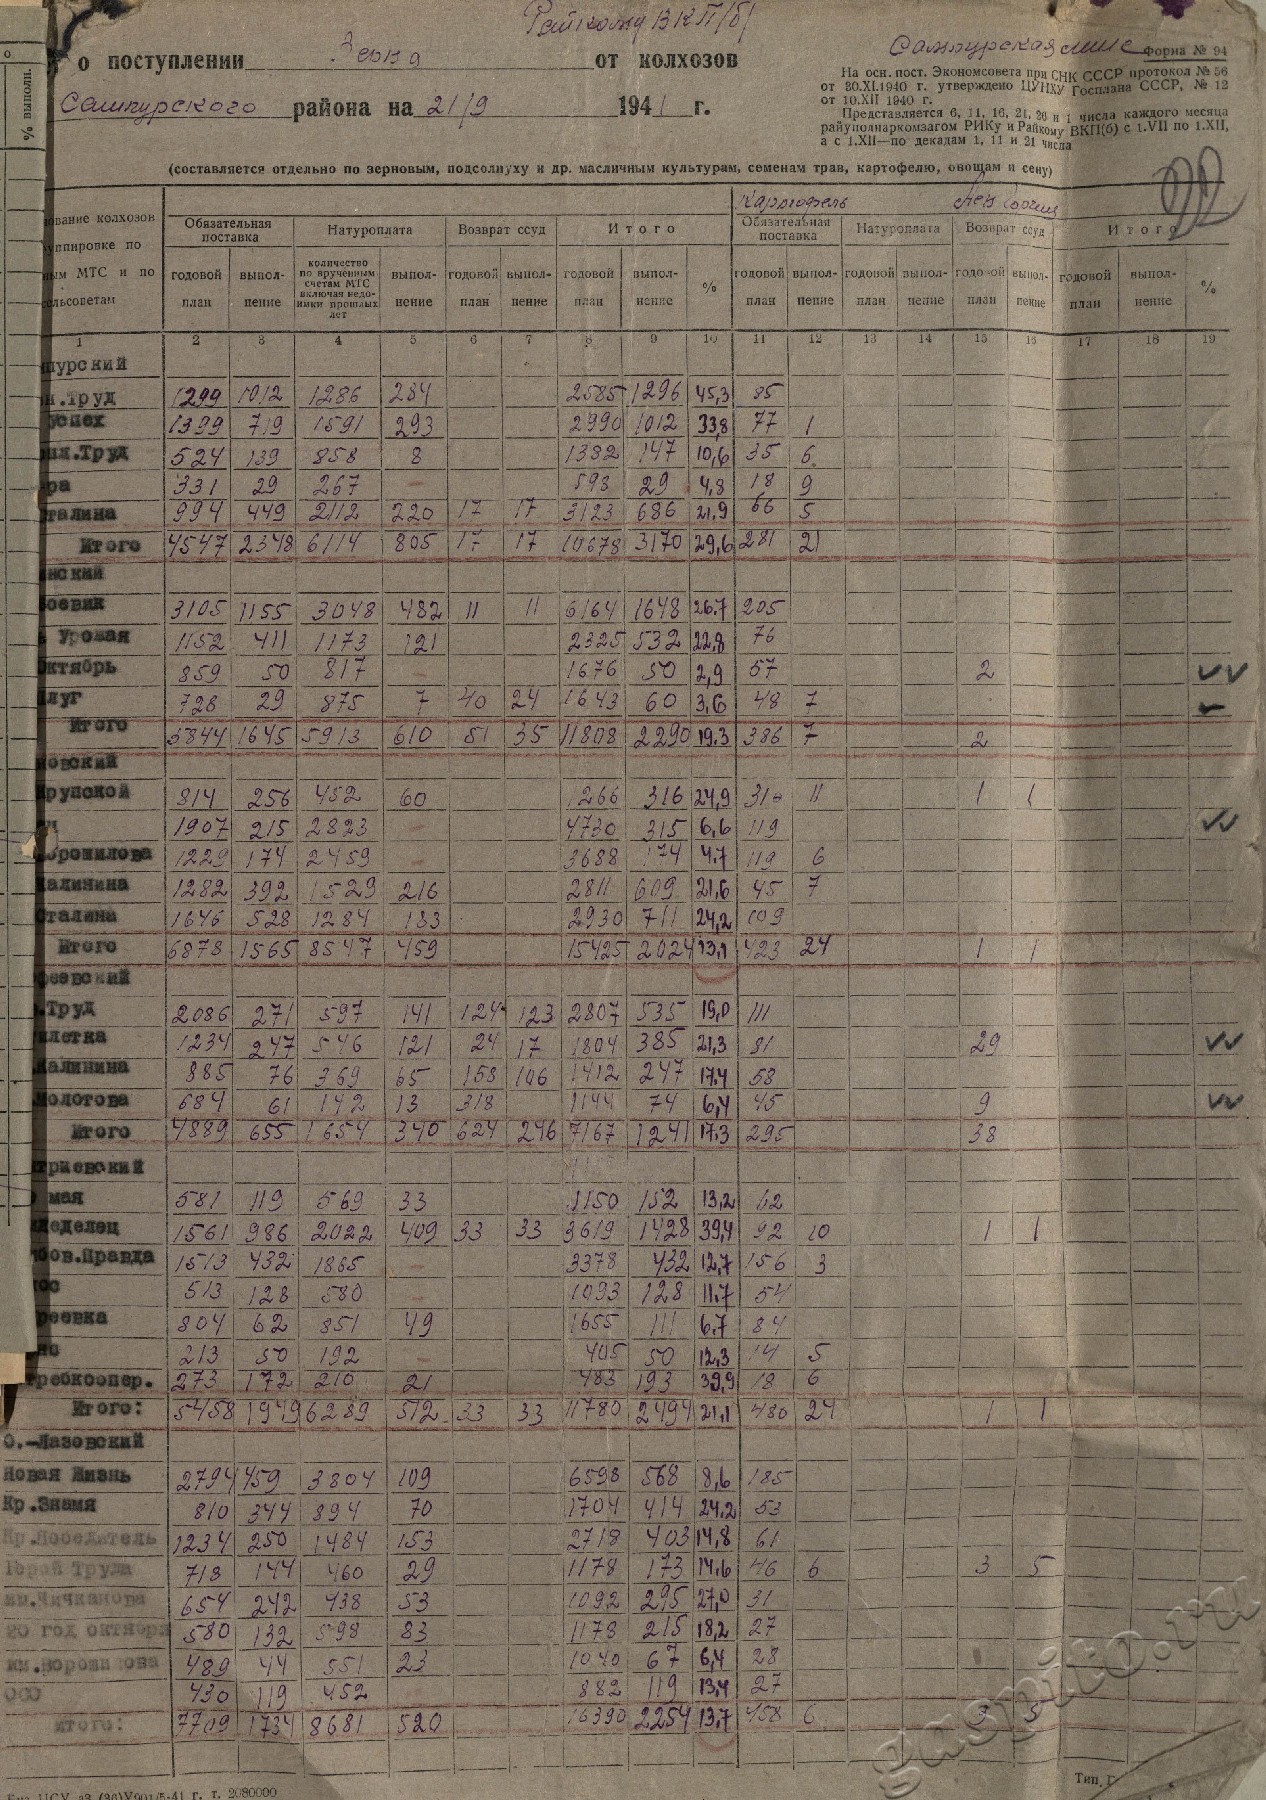 Райкому ВКП/б/
о поступлении Зерна от колхозов
Сампурского района на 21/9 1941 г.
Форма № 94
На осн. пост. Экономсовета при СНК СССР протокол № 56
от 30.XI.1940 г. утверждено ЦУНХУ Госплана СССР, № 12
от 10.XII 1940 г.
Представляется 6, 11, 16, 21, 26 и 1 числа каждого месяца
райуполнаркомзагом РИКу и Райкому ВКП(б) с 1.VII по 1.XII,
а с 1.XII—по декадам 1, 11 и 21 числа
(составляется отдельно по зерновым, подсолнуху и др. масличным культурам, семенам трав, картофелю, овощам и сену)
% выполн.
ование колхозов
уппировке по
ным МТС и по
сельсоветам
Картофель
Обязательная поставка Натуроплата Возврат ссуд Итого Обязательная поставка Натуроплата Возврат ссуд Итого
годовой план выпол-нение количество по врученным счетам МТС включая недо-имки прошлых лет выпол-нение годовой план выпол-нение годовой план выпол-нение % годовой план выпол-нение годовой план выпол-нение годовой план выпол-нение годовой план выпол-нение %
1 2 3 4 5 6 7 8 9 10 11 12 13 14 15 16 17 18 19
пурский
н.Труд 1299 1012 1286 284 2585 1296 45,3 85
спех 1399 719 1591 293 2990 1012 33,8 77 1
ин.Труд 524 139 858 8 1382 147 10,6 35 6
ра 331 29 267 – 598 29 4,8 18 9
талина 994 449 2112 220 17 17 3123 686 21,9 66 5
Итого 4547 2348 6114 805 17 17 10678 3170 29,6 281 21
нский
оевик 3105 1155 3048 482 11 11 6164 1648 26.7 205
Урожая 1152 411 1173 121 2325 532 22,8 76
ктябрь 859 50 817 – 1676 50 2,9 57 2
луг 728 29 875 7 40 24 1643 60 3,6 48 7
Итого 5844 1645 5913 610 51 35 11808 2290 19.3 386 7 2
новский
рупской 814 256 452 60 1266 316 24,9 31 11 1 1
1907 215 2823 – 4730 315 6,6 119
орошилова 1229 174 2459 – 3688 174 4.7 119 6
Калинина 1282 392 1529 216 2811 609 21,6 45 7
Сталина 1646 528 1284 183 2930 711 24,2 109
Итого 6878 1565 8547 459 15425 2024 13,1 423 24 1 1
феевский
.Труд 2086 271 597 141 124 123 2807 535 19,0 111
илетка 1234 247 546 121 24 17 1804 385 21,3 81 29
Калинина 885 76 369 65 158 106 1412 247 17.4 58
Молотова 684 61 142 13 318 1144 74 6,4 45 9
Итого 4889 655 1654 340 624 246 7167 1241 17.3 295 38
триевский
мая 581 119 569 33 1150 152 13,2 62
леделец 1561 986 2022 409 33 33 3619 1428 39,4 92 10 1 1
бов.Правда 1513 432 1865 – 3378 432 12,7 156 3
ос 513 128 580 – 1093 128 11.7 54
реевка 804 62 851 49 1655 111 6,7 84
но 213 50 192 – 405 50 12,3 14 5
требкоопер. 273 172 210 21 483 193 39,9 18 6
Итого: 5458 1949 6289 512 33 33 11780 2494 21,1 480 24 1 1
О.-Лазовский
Новая Жизнь 2794 459 3804 109 6598 568 8,6 185
Кр.Знамя 810 344 894 70 1704 414 24,2 53
Кр.Победитель 1234 250 1484 153 2718 403 14,8 61
Герой Труда 718 144 460 29 1178 173 14,6 46 6 3 5
им.Чичканова 654 242 438 53 1092 295 27,0 31
20 год октября 580 132 598 83 1178 215 18,2 27
им.Ворошилова 489 44 551 23 1040 67 6,4 28
ОСО 430 119 452 882 119 13,4 27
итого: 7709 1734 8681 520 16390 2254 13,7 458 6 3 5
gaspito.ru
Тип.